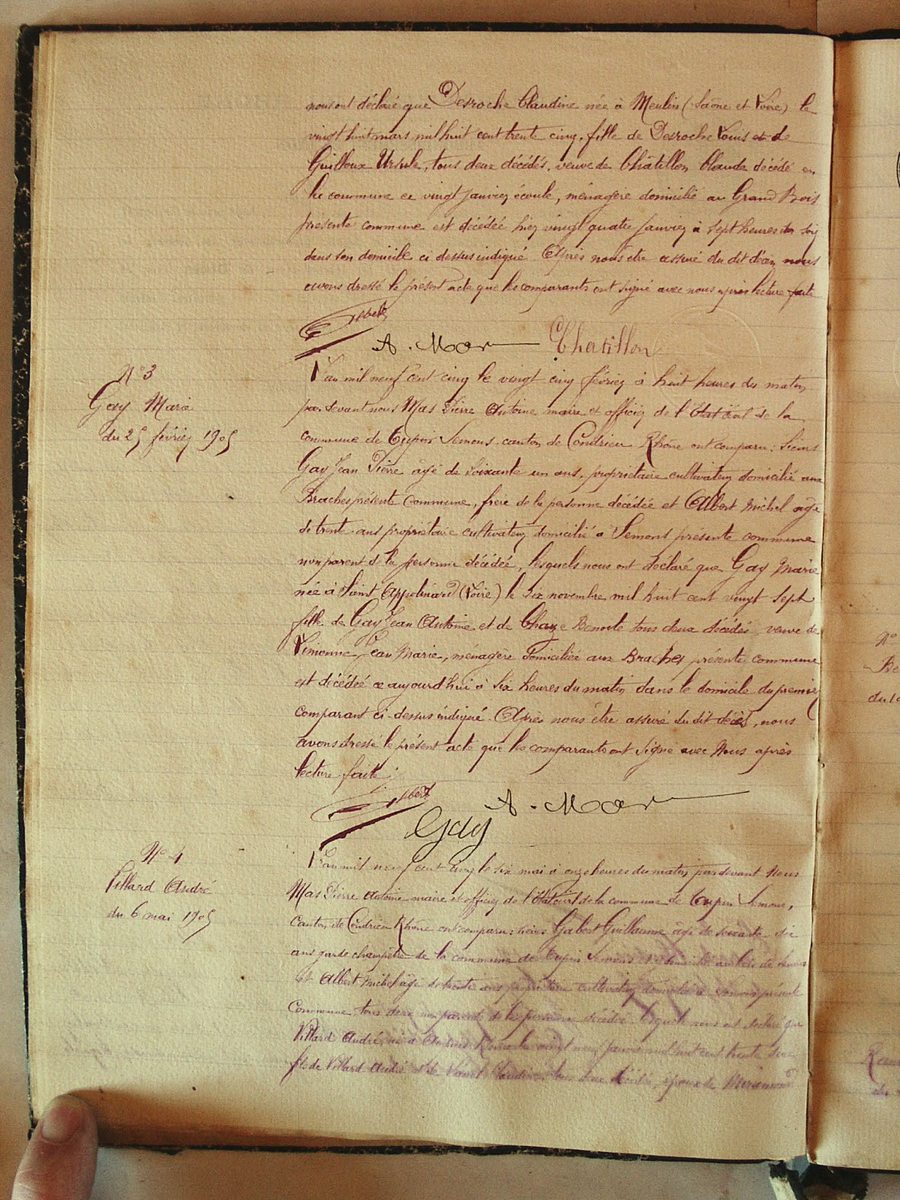 nous ont déclaré que Desroche Claudine née à Meulin (Saône et Loire) le
vingt huit mars mil huit cent trente cinq, fille de Desroche Louis et de
Guilloux Ursule, tous deux décédés, veuve de Châtillon Claude décédé en
la commune ce vingt janvier écoulé, ménagère domicilié au Grand Bois
présente commune est décédée hier vingt quatre janvier à sept heures du soir
dans son domicile ci dessus indiqué Après nous être assuré du dit décès, nous
avons dressé le présent acte que les comparants ont signé avec nous après lecture faite
A. Mas Chatillon
N° 3
Gay Marie
du 25 février 1905
L'an mil neuf cent cinq le vingt cinq février à huit heures du matin
par devant nous Mas Pierre Antoine maire et officier de l'Etat civil de la
commune de Tupin Semons canton de Condrieu Rhône ont comparu: Sieurs
Gay Jean Pierre âgé de soixante un ans, propriétaire cultivateur domicilié aux
Braches présente commune, frère de la personne décédée et Albert Michel âgé
de trente ans propriétaire cultivateur domicilié à Semons présente commune
non parent de la personne décédée, lesquels nous ont déclaré que Gay Marie
née à Saint Appolinard (Loire) le six novembre mil huit cent vingt sept
fille de Gay Jean Antoine et de Chaze Benoîte tous deux décédés, veuve de
Jean Marie, ménagère domiciliée aux Braches présente commune
est décédée ce aujourd'hui à six heures du matin dans le domicile du premier
comparant ci-dessus indiqué Après nous être assuré du dit décès, nous
avons dressé le présent acte que les comparants ont signé avec Nous après
lecture faite
A. Mas
Gay
N° 4
Villard André
du 6 mai 1905
L'an mil neuf cent cinq le six mai à onze heures du matin par devant Nous
Mas Pierre Antoine maire et officier de l'Etat civil de la commune de Tupin Semons,
canton de Condrieu Rhône ont comparu: sieurs Gabert Guillaume âgé de soixante dix
ans garde champêtre de la commune de Tupin Semons
et Albert Michel âgé de trente ans propriétaire cultivateur domicilié à Semons présente
commune, tous deux non parents de la personne décédée lesquels nous ont déclaré que
Villard André né à vingt neuf mil huit cent trente
fils de Villard André et de tous deux décédés, époux de